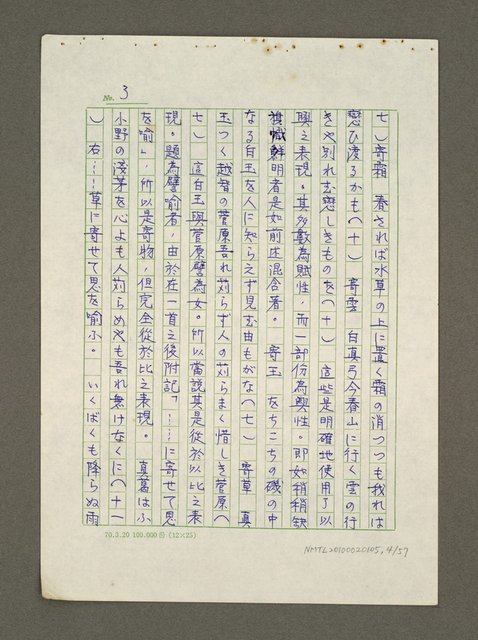 No. 3
七)寄霜 春されば水草の上に置く霜の消つつも我れは
戀ひ渡るかも(十) 寄雲 白真弓今春山に行く雲の行
きや別れむ戀しきものを(十) 這些是明確地使用了以
興之表現。其多數為賦性，而一部份為興性。即如稍稍缺
旗幟鮮明者是如前述混合著。 寄玉 をちこちの磯の中
なる白玉を人に知らえず見む由もがな(七) 寄草 真
玉つく越智の菅原吾れ苅らず人の苅らまく惜しき菅原(
七) 這白玉與菅原譬為女。所以當說其是從於以比之表
現。題為譬喻者，由於在一首之後附記「……に寄せて思
を喻」，所以是寄物，但完全從於比之表現。 真葛はふ
小野の淺茅を心よも人苅らめやも吾れ無けなくに(十一
) 右……草に寄せて思を喻ふ。 いくばくも降らぬ雨
70.3.20 100.000份 (12×25)
NMTL20100020105, 4/57